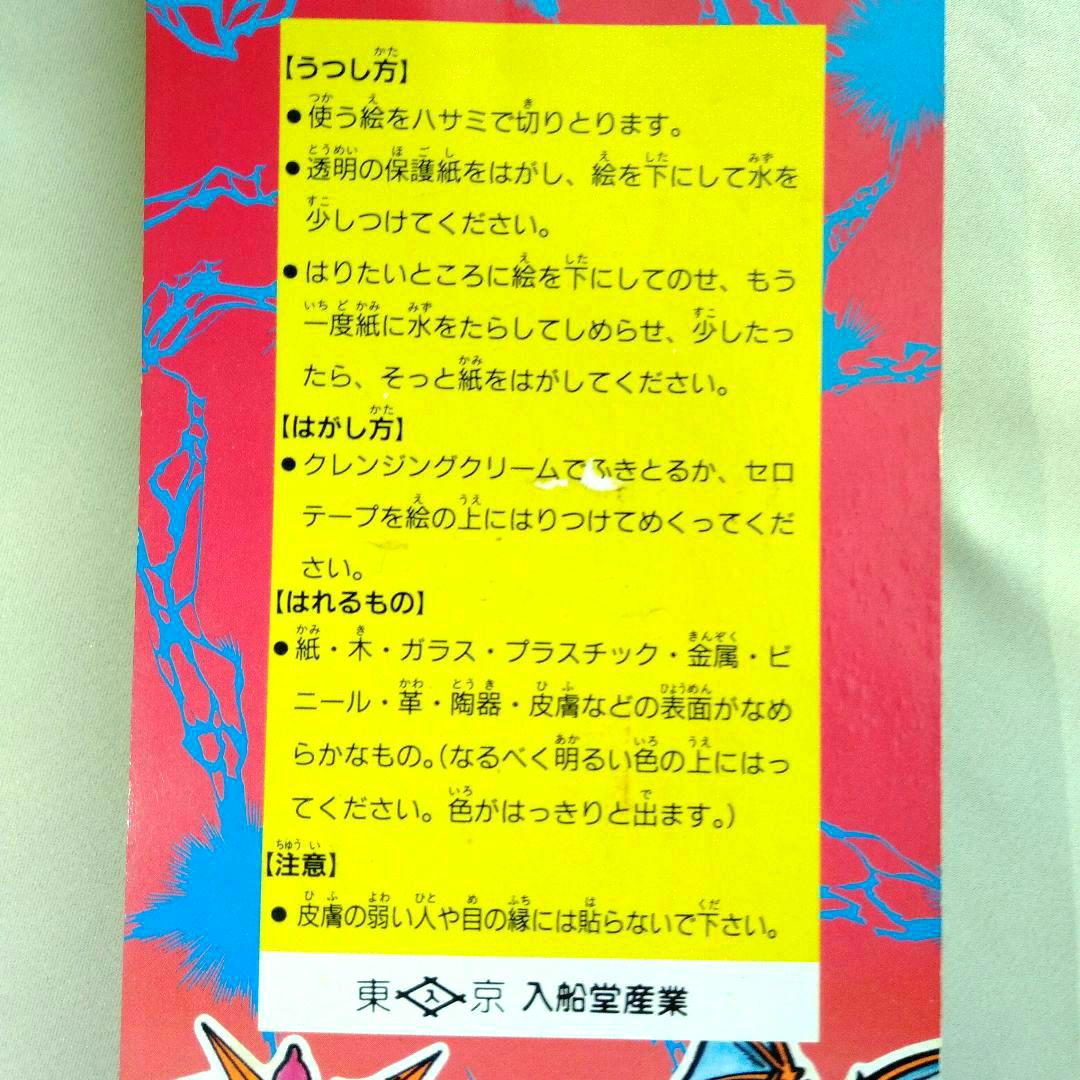 【うつし方】
●使う絵をハサミで切りとります。
●透明の保護紙をはがし、絵を下にして水を
少しつけてください。
●はりたいところに絵を下にしてのせ、もう
一度紙に水をたらしてしめらせ、少したっ
たら、そっと紙をはがしてください。
【はがし方】
●クレンジングクリームでふきとるか、セロ
テープを絵の上にはりつけてめくってくだ
さい。
【はれるもの】
●紙・木・ガラス・プラスチック・金属・ビ
ニール・革・陶器・皮膚などの表面がなめ
らかなもの。(なるべく明るい色の上にはっ
てください。色がはっきりと出ます。)
【注意】
●皮膚の弱い人や目の縁には貼らないで下さい。
東 入 京 入船堂産業